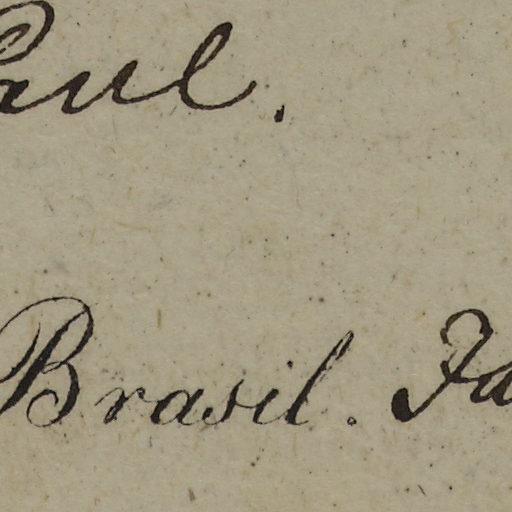 Paul.
Brasil. Ja